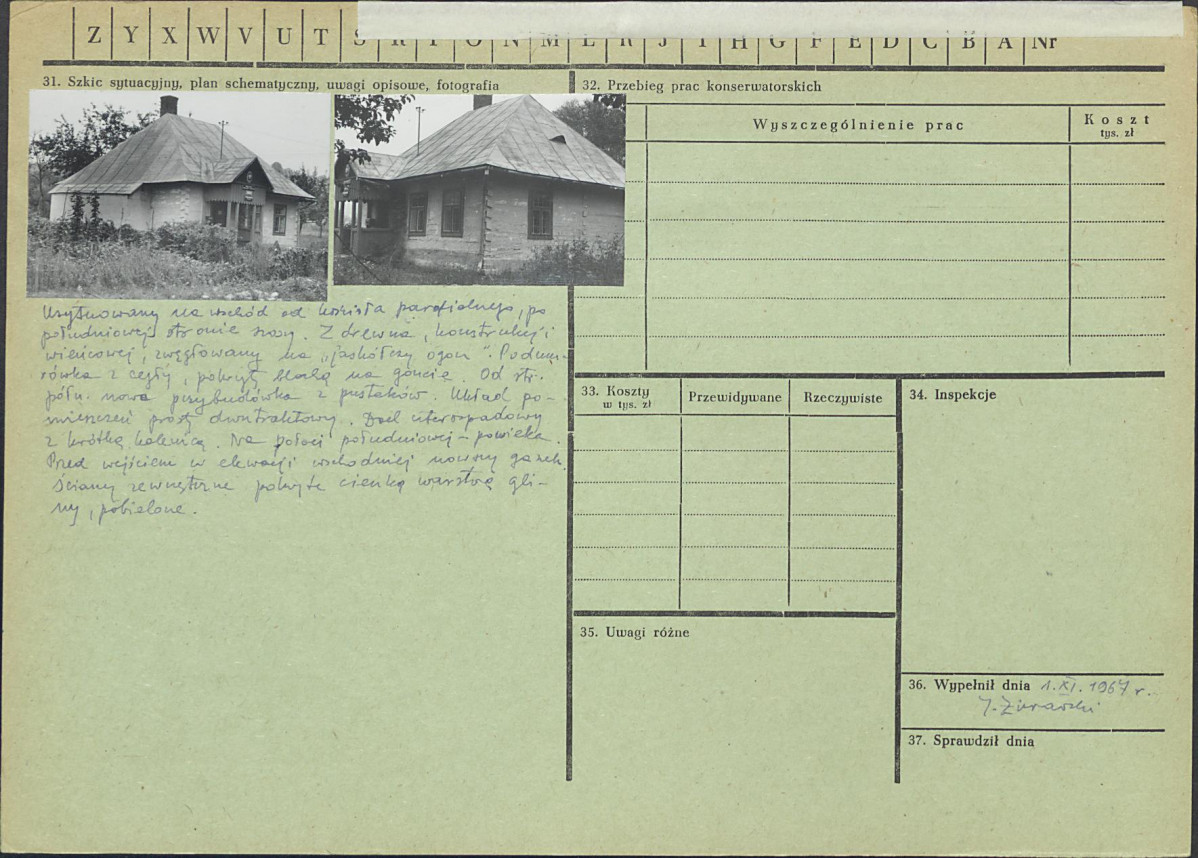 Z Y X W V U T S R P O N M L K J I H G F E D C B A Nr
31. Szkic sytuacyjny, plan schematyczny, uwagi opisowe, fotografia
Usytuowany na wschód od kościoła parafialnego, po
południowej stronie szosy. Z drewna, konstrukcji
wieńcowej, zwęgłowany na „jaskółczy ogon". Podmu-
rówka z cegły, pokryty blachą na goncie. Od str.
półn. nowa przybudówka z pustaków. Układ po-
mieszczeń prosty dwutraktowy. Dach czterospadowy
z krótką kalenicą. Na połaci południowej – powieka.
Przed wejściem w elewacji wschodniej nowszy ganek.
Ściany zewnętrzne pokryte cienką warstwą gli-
ny, pobielone.
32. Przebieg prac konserwatorskich
Wyszczególnienie prac
Koszt
tys. zł
33. Koszty
w tys. zł
Przewidywane
Rzeczywiste
34. Inspekcje
35. Uwagi różne
36. Wypełnił dnia 1.XI.1967 r.
J. Żurawski
37. Sprawdził dnia